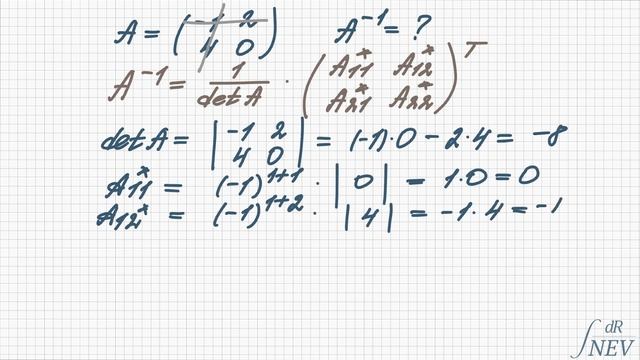 A = (-1 2 A⁻¹ = ?
4 0)
A⁻¹ = 1/det A · (A₁₁* A₁₂*
A₂₁* A₂₂*)ᵀ
det A = |-1 2
4 0| = (-1)·0 - 2·4 = -8
A₁₁* = (-1)¹⁺¹ · |0| = 1·0 = 0
A₁₂* = (-1)¹⁺² · |4| = -1·4 = -1
∫ dR
NEV